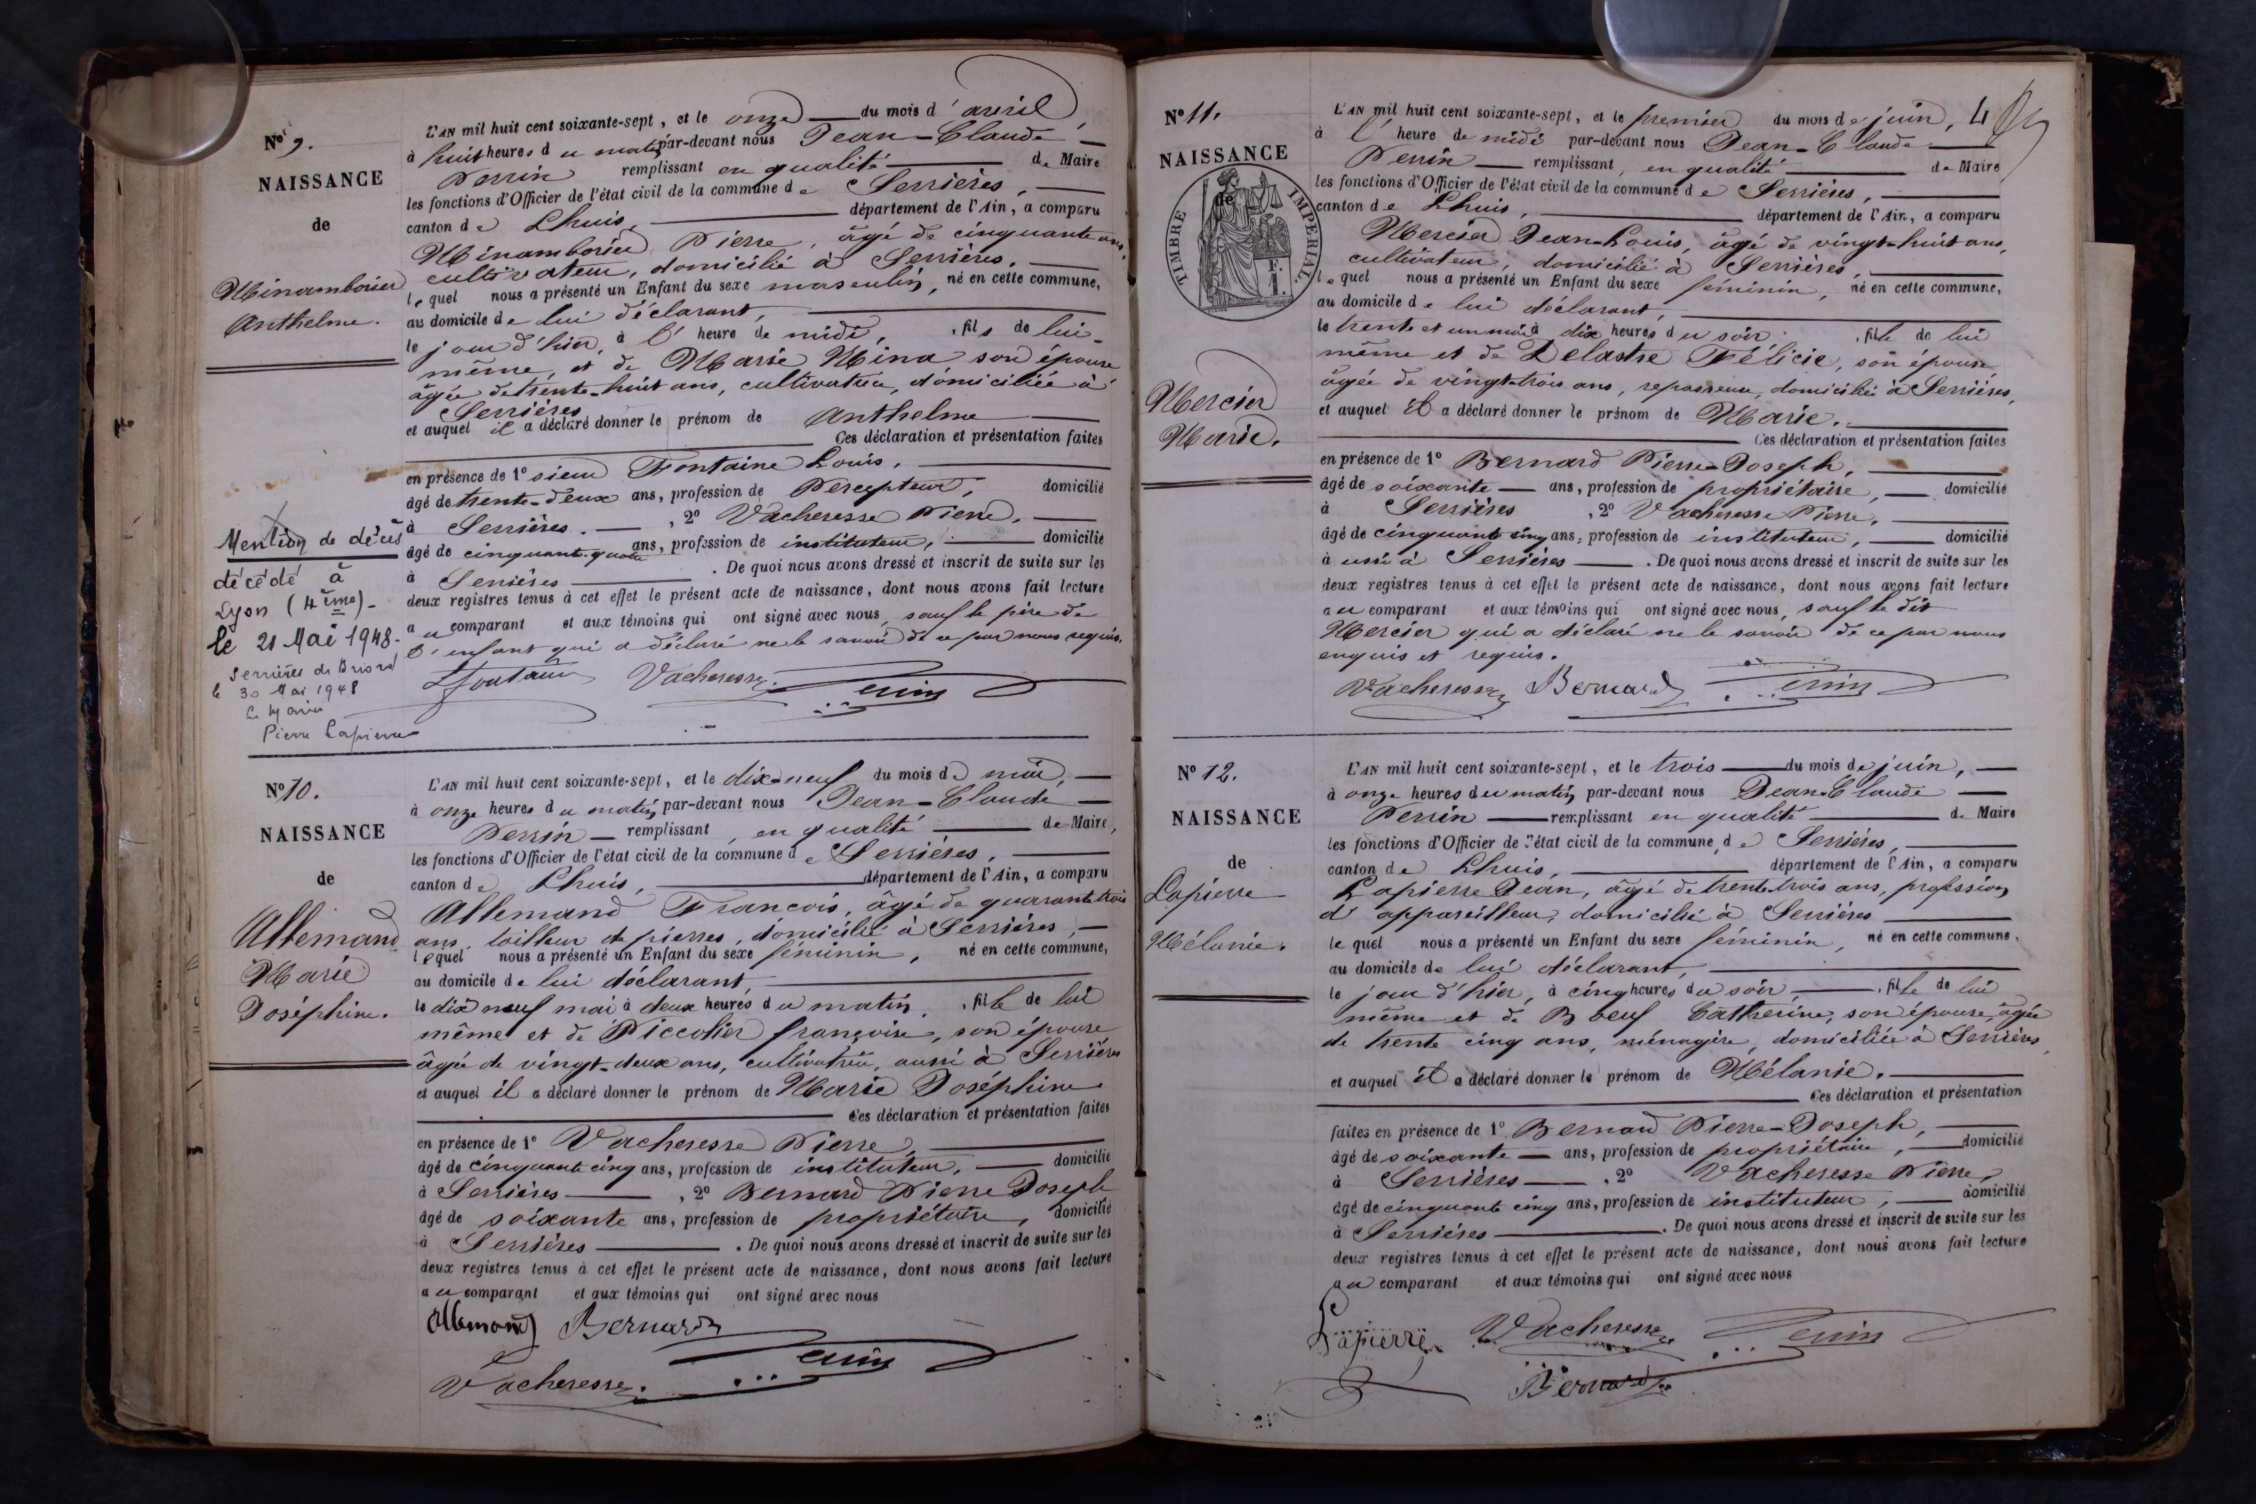 N° 9.
NAISSANCE
de
Minamborier
Anthelme.
Mention de décès
décédé à
Lyon (4ème) -
le 21 Mai 1948.
Serrières de Briord
le 30 Mai 1948
Le Maire
Pierre Lapierre
L'AN mil huit cent soixante-sept, et le onze du mois d'avril,
à huit heures du matin par-devant nous Jean-Claude
Perrin remplissant en qualité de Maire
les fonctions d'Officier de l'état civil de la commune de Serrières,
canton de Lhuis, département de l'Ain, a comparu
Minamborier Pierre, âgé de cinquante ans,
cultivateur, domicilié à Serrières.
lequel nous a présenté un Enfant du sexe masculin, né en cette commune,
au domicile de lui déclarant,
le jour d'hier, à l'heure de midi, fils de lui-
même, et de Marie Mina son épouse
âgée de trente-huit ans, cultivatrice, domiciliée à
Serrières
et auquel il a déclaré donner le prénom de Anthelme
Ces déclaration et présentation faites
en présence de 1° sieur Fontaine Louis,
âgé de trente-deux ans, profession de Percepteur, domicilié
à Serrières. , 2° Vacheresse Pierre,
âgé de cinquante-quatre ans, profession de instituteur, domicilié
à Serrières . De quoi nous avons dressé et inscrit de suite sur les
deux registres tenus à cet effet le présent acte de naissance, dont nous avons fait lecture
au comparant et aux témoins qui ont signé avec nous, sauf le père de
l'enfant qui a déclaré ne le savoir de ce par nous requis.
Fontaine Vacheresse Perrin
N° 10.
NAISSANCE
de
Allemand
Marie
Joséphine.
L'AN mil huit cent soixante-sept, et le dix-neuf du mois de mai,
à onze heures du matin, par-devant nous Jean-Claude
Perrin remplissant, en qualité de Maire,
les fonctions d'Officier de l'état civil de la commune de Serrières,
canton de Lhuis, département de l'Ain, a comparu
Allemand François, âgé de quarante trois
ans, tailleur de pierres, domicilié à Serrières,
lequel nous a présenté un Enfant du sexe féminin, né en cette commune,
au domicile de lui déclarant,
le dix neuf mai à deux heures du matin, fille de lui
même et de Piccolier françoise, son épouse
âgée de vingt-deux ans, cultivatrice, aussi à Serrières
et auquel il a déclaré donner le prénom de Marie Joséphine
Ces déclaration et présentation faites
en présence de 1° Vacheresse Pierre,
âgé de cinquante cinq ans, profession de instituteur, domicilié
à Serrières , 2° Bernard Pierre Joseph
âgé de soixante ans, profession de propriétaire, domicilié
à Serrières . De quoi nous avons dressé et inscrit de suite sur les
deux registres tenus à cet effet le présent acte de naissance, dont nous avons fait lecture
au comparant et aux témoins qui ont signé avec nous
Allemand Bernard
Vacheresse Perrin
N° 11.
NAISSANCE
de
TIMBRE IMPERIAL.
1 F.
Mercier
Marie.
L'AN mil huit cent soixante-sept, et le premier du mois de juin, 4
à l'heure de midi par-devant nous Jean-Claude
Perrin remplissant, en qualité de Maire
les fonctions d'Officier de l'état civil de la commune de Serrières,
canton de Lhuis, département de l'Ain, a comparu
Mercier Jean-Louis, âgé de vingt-huit ans,
cultivateur, domicilié à Serrières,
lequel nous a présenté un Enfant du sexe féminin, né en cette commune,
au domicile de lui déclarant,
le trente et un mai à dix heures du soir, fille de lui
même et de Delastre Félicie, son épouse
âgée de vingt-trois ans, repasseuse, domiciliée à Serrières,
et auquel il a déclaré donner le prénom de Marie.
Ces déclaration et présentation faites
en présence de 1° Bernard Pierre-Joseph,
âgé de soixante ans, profession de propriétaire, domicilié
à Serrières , 2° Vacheresse Pierre,
âgé de cinquante cinq ans, profession de instituteur, domicilié
aussi à Serrières . De quoi nous avons dressé et inscrit de suite sur les
deux registres tenus à cet effet le présent acte de naissance, dont nous avons fait lecture
au comparant et aux témoins qui ont signé avec nous, sauf le dit
Mercier qui a déclaré ne le savoir de ce par nous
enquis et requis.
Vacheresse Bernard Perrin
N° 12.
NAISSANCE
de
Lapierre
Mélanie.
L'AN mil huit cent soixante-sept, et le trois du mois de juin,
à onze heures du matin, par-devant nous Jean-Claude
Perrin remplissant en qualité de Maire
les fonctions d'Officier de l'état civil de la commune, de Serrières,
canton de Lhuis, département de l'Ain, a comparu
Lapierre Jean, âgé de trente-trois ans, profession
d'appareilleur, domicilié à Serrières
lequel nous a présenté un Enfant du sexe féminin, né en cette commune,
au domicile de lui déclarant,
le jour d'hier, à cinq heures du soir, fille de lui
même et de Boeuf Catherine, son épouse, âgée
de trente cinq ans, ménagère, domiciliée à Serrières,
et auquel il a déclaré donner le prénom de Mélanie.
Ces déclaration et présentation
faites en présence de 1° Bernard Pierre-Joseph,
âgé de soixante ans, profession de propriétaire, domicilié
à Serrières , 2° Vacheresse Pierre,
âgé de cinquante cinq ans, profession de instituteur, domicilié
à Serrières . De quoi nous avons dressé et inscrit de suite sur les
deux registres tenus à cet effet le présent acte de naissance, dont nous avons fait lecture
au comparant et aux témoins qui ont signé avec nous
Lapierre Vacheresse Perrin
Bernard